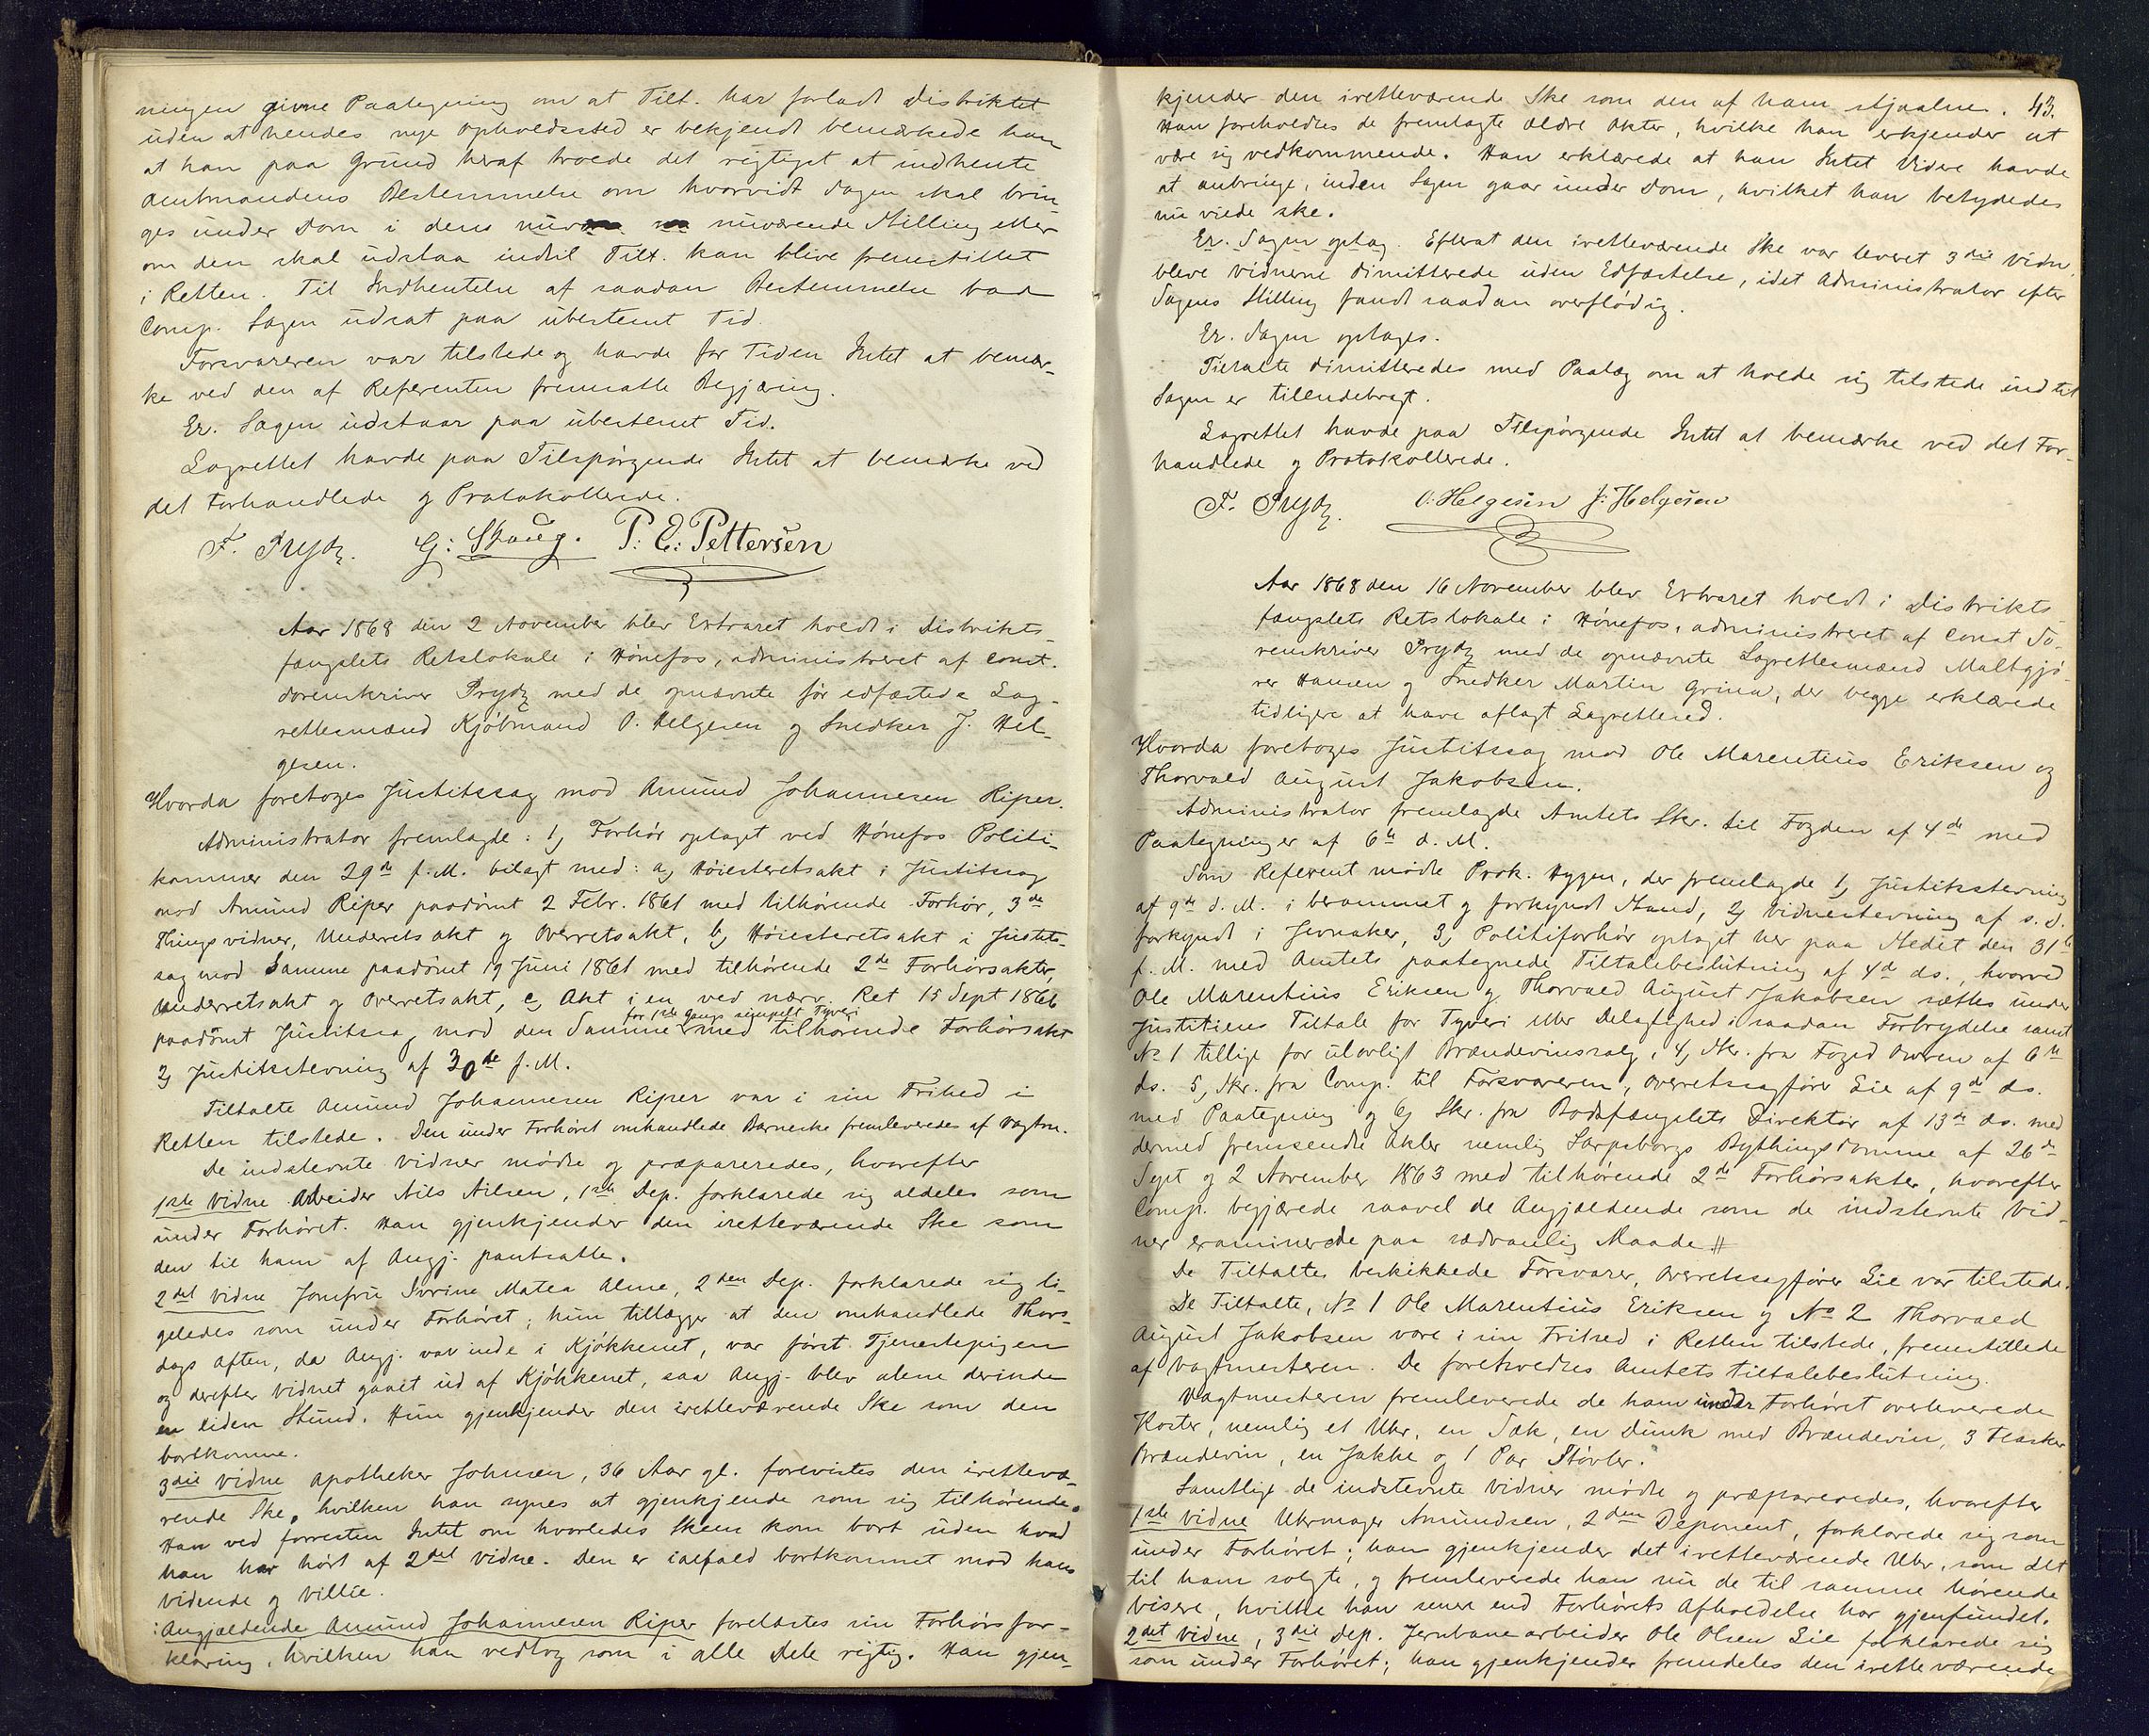 ningen givne Paategning om at Tilt. har forladt Distriktet
uden at hendes nye Opholdssted er bekjendt bemærkede han
at han paa Grund heraf troede det rigtigst at indhente
Amtmandens Bestemmelse om hvorvidt Sagen skal brin
ges under Dom i dens nuværende Stilling eller
om den skal udstaa indtil Tilt. kan blive fremstillet
i Retten. Til Indhentelse af saadan Bestemmelse bad
Comp. Sagen udsat paa ubestemt Tid.
Forsvareren var tilstede og havde for Tiden Intet at bemær-
ke ved den af Referenten fremsatte Begjæring.
Er. Sagen udstaar paa ubestemt Tid.
Lagrettet havde paa Tilspørgende Intet at bemærke ved
det Forhandlede og Protokollerede.
F. Prydz. G: Skaug. P: E: Pettersen
Aar 1868 den 2 November blev Extraret holdt i Distrikts-
fængslets Retslokale i Hønefos, administreret af Const.
Sorenskriver Prydz med de opnævnte før edfæstede Lag-
rettesmænd Kjøbmand O. Helgesen og Snedker J. Hel-
gesen.
Hvorda foretoges Justitssag mod Amund Johannesen Riper.
Administrator fremlagde: 1, Forhør optaget ved Hønefos Politi-
kammer den 29de f.M. bilagt med: a, Høiesteretsakt i Justitssag
mod Amund Riper paadømt 2 Febr. 1861 med tilhørende Forhør, 3de
Thingsvidner, Underretsakt og Overretsakt, b, Høiesteretsakt i Justits-
sag mod Samme paadømt 19 Juni 1861 med tilhørende 2de Forhørsakter
Underretsakt og Overretsakt, c, Akt i en ved nærv. Ret 15 Sept 1866
for 1ste Gangs simpelt Tyveri
paadømt Justitssag mod den Samme med tilhørende Forhørsakt
2, Justitsstevning af 30de f.M.
Tiltalte Amund Johannesen Riper var i sin Frihed i
Retten tilstede. Den under Forhøret omhandlede Barneske fremleveredes af Vagtm.
De indstevnte Vidner mødte og præpareredes, hvorefter
1ste Vidne Arbeider Nils Nilsen, 1ste Dep. forklarede sig aldeles som
under Forhøret. Han gjenkjender den iretteværende Ske som
den til ham af Angj. pantsatte.
2det Vidne Jomfru Matea Alme, 2den Dep. forklarede sig li-
geledes som under Forhøret; hun tillægger at den omhandlede Thors-
dags Aften, da Angj. var inde i Kjøkkenet, var først Tjenestepigen
og derefter Vidnet gaaet ud af Kjøkkenet, saa Angj. blev alene derinde
en liden Stund. Hun gjenkjender den iretteværende Ske som den
bortkomne.
3die Vidne Apotheker Johnsen, 36 Aar gl. forevistes den irettevæ-
rende Ske, hvilken han synes at gjenkjende som sig tilhørende.
Han ved forresten Intet om hvorledes Skeen kom bort uden hvad
han har hørt af 2det Vidne. Den er ialfald bortkommet mod hans
vidende og Villie.
Angjældende Amund Johannesen Riper forelæstes sin Forhørsfor-
klaring, hvilken han vedtog som i alle Dele rigtig. Han gjen-
kjender den iretteværende Ske som den af ham stjaalne. 43.
Han foreholdtes de fremlagte ældre Akter, hvilke han erkjender at
være sig vedkommende. Han erklærede at han Intet Videre havde
at anbringe, inden Sagen gaar under Dom, hvilket han betydedes
nu vilde ske.
Er. Sagen optag. Efterat den iretteværende Ske var leveret 3die Vidne,
bleve Vidnerne dimitterede uden Edfæstelse, idet Administrator efter
Sagens Stilling fandt saadan overflødig.
Er. Sagen optages.
Tiltalte dimitteredes med Paalæg om at holde sig tilstede indtil
Sagen er tilendebragt.
Lagrettet havde paa Tilspørgende Intet at bemærke ved det For-
handlede og Protokollerede.
F. Prydz. O: Helgesen J: Helgesen
Aar 1868 den 16 November blev Extraret holdt i Distrikts
fængslets Retslokale i Hønefos, administreret af Const So-
renskriver Prydz med de opnævnte Lagrettesmænd Maltgjø-
rer Hansen og Snedker Martin Grina, der begge erklærede
tidligere at have aflagt Lagretteed.
Hvorda foretoges Justitssag mod Ole Marentius Eriksen og
Thorvald August Jakobsen.
Administrator fremlagde Amtets Skr. til Fogden af 4de med
Paategninger af 6te d.M.
Som Referent mødte Prok. Hygen, der fremlagde 1, Justitsstevning
af 9de d.M. i berammet og forkyndt Stand, 2, Vidnestevning af s.d.
forkyndt i Jevnaker, 3, Politiforhør optaget her paa Stedet den 31te
f.M. med Amtets paategnede Tiltalebeslutning af 4de ds., hvorved
Ole Marentius Eriksen og Thorvald August Jakobsen sættes under
Justitiens Tiltale for Tyveri eller Delagtighed i saadan Forbrydelse samt
No 1 tillige for ulovligt Brændevinssalg, 4, Skr. fra Foged Owren af 6te
ds. 5, Skr. fra Comp. til Forsvareren, Overretssagfører Lie af 9de ds.
med Paategning og 6, Skr. fra Bodsfængslets Direktør af 13de ds. med
dermed fremsendte Akter nemlig Sarpsborgs Bythingsdomme af 26de
Sept og 2 November 1863 med tilhørende 2de Forhørsakter, hvorefter
Comp. begjærede saavel de Angjældende som de indstevnte Vid-
ner examinerede paa sædvanlig Maade.
De Tiltaltes beskikkede Forsvarer, Overretssagfører Lie var tilstede.
De Tiltalte, No 1 Ole Marentius Eriksen og No 2 Thorvald
August Jakobsen vare i sin Frihed i Retten tilstede, fremstillede
af Vagtmesteren. De foreholdtes Amtets Tiltalebeslutning.
Vagtmesteren fremleverede de ham under Forhøret overleverede
Koster, nemlig et Uhr, en Sæk, en Dunk med Brændevin, 3 Flasker
Brændevin, en Jakke og 1 Par Støvler.
Samtlige de indstevnte Vidner mødte og præpareredes, hvorefter
1ste Vidne Uhrmager Amundsen, 2den Deponent, forklarede sig som
under Forhøret; han gjenkjender det iretteværende Uhr, som det
til ham solgte, og fremleverede han nu de til samme hørende
Visere, hvilke han senere end Forhørets Afholdelse har gjenfundet.
2det Vidne, 3die Dep. Jernbanearbeider Ole Olsen Lie forklarede sig
som under Forhøret; han gjenkjender fremdeles den iretteværende